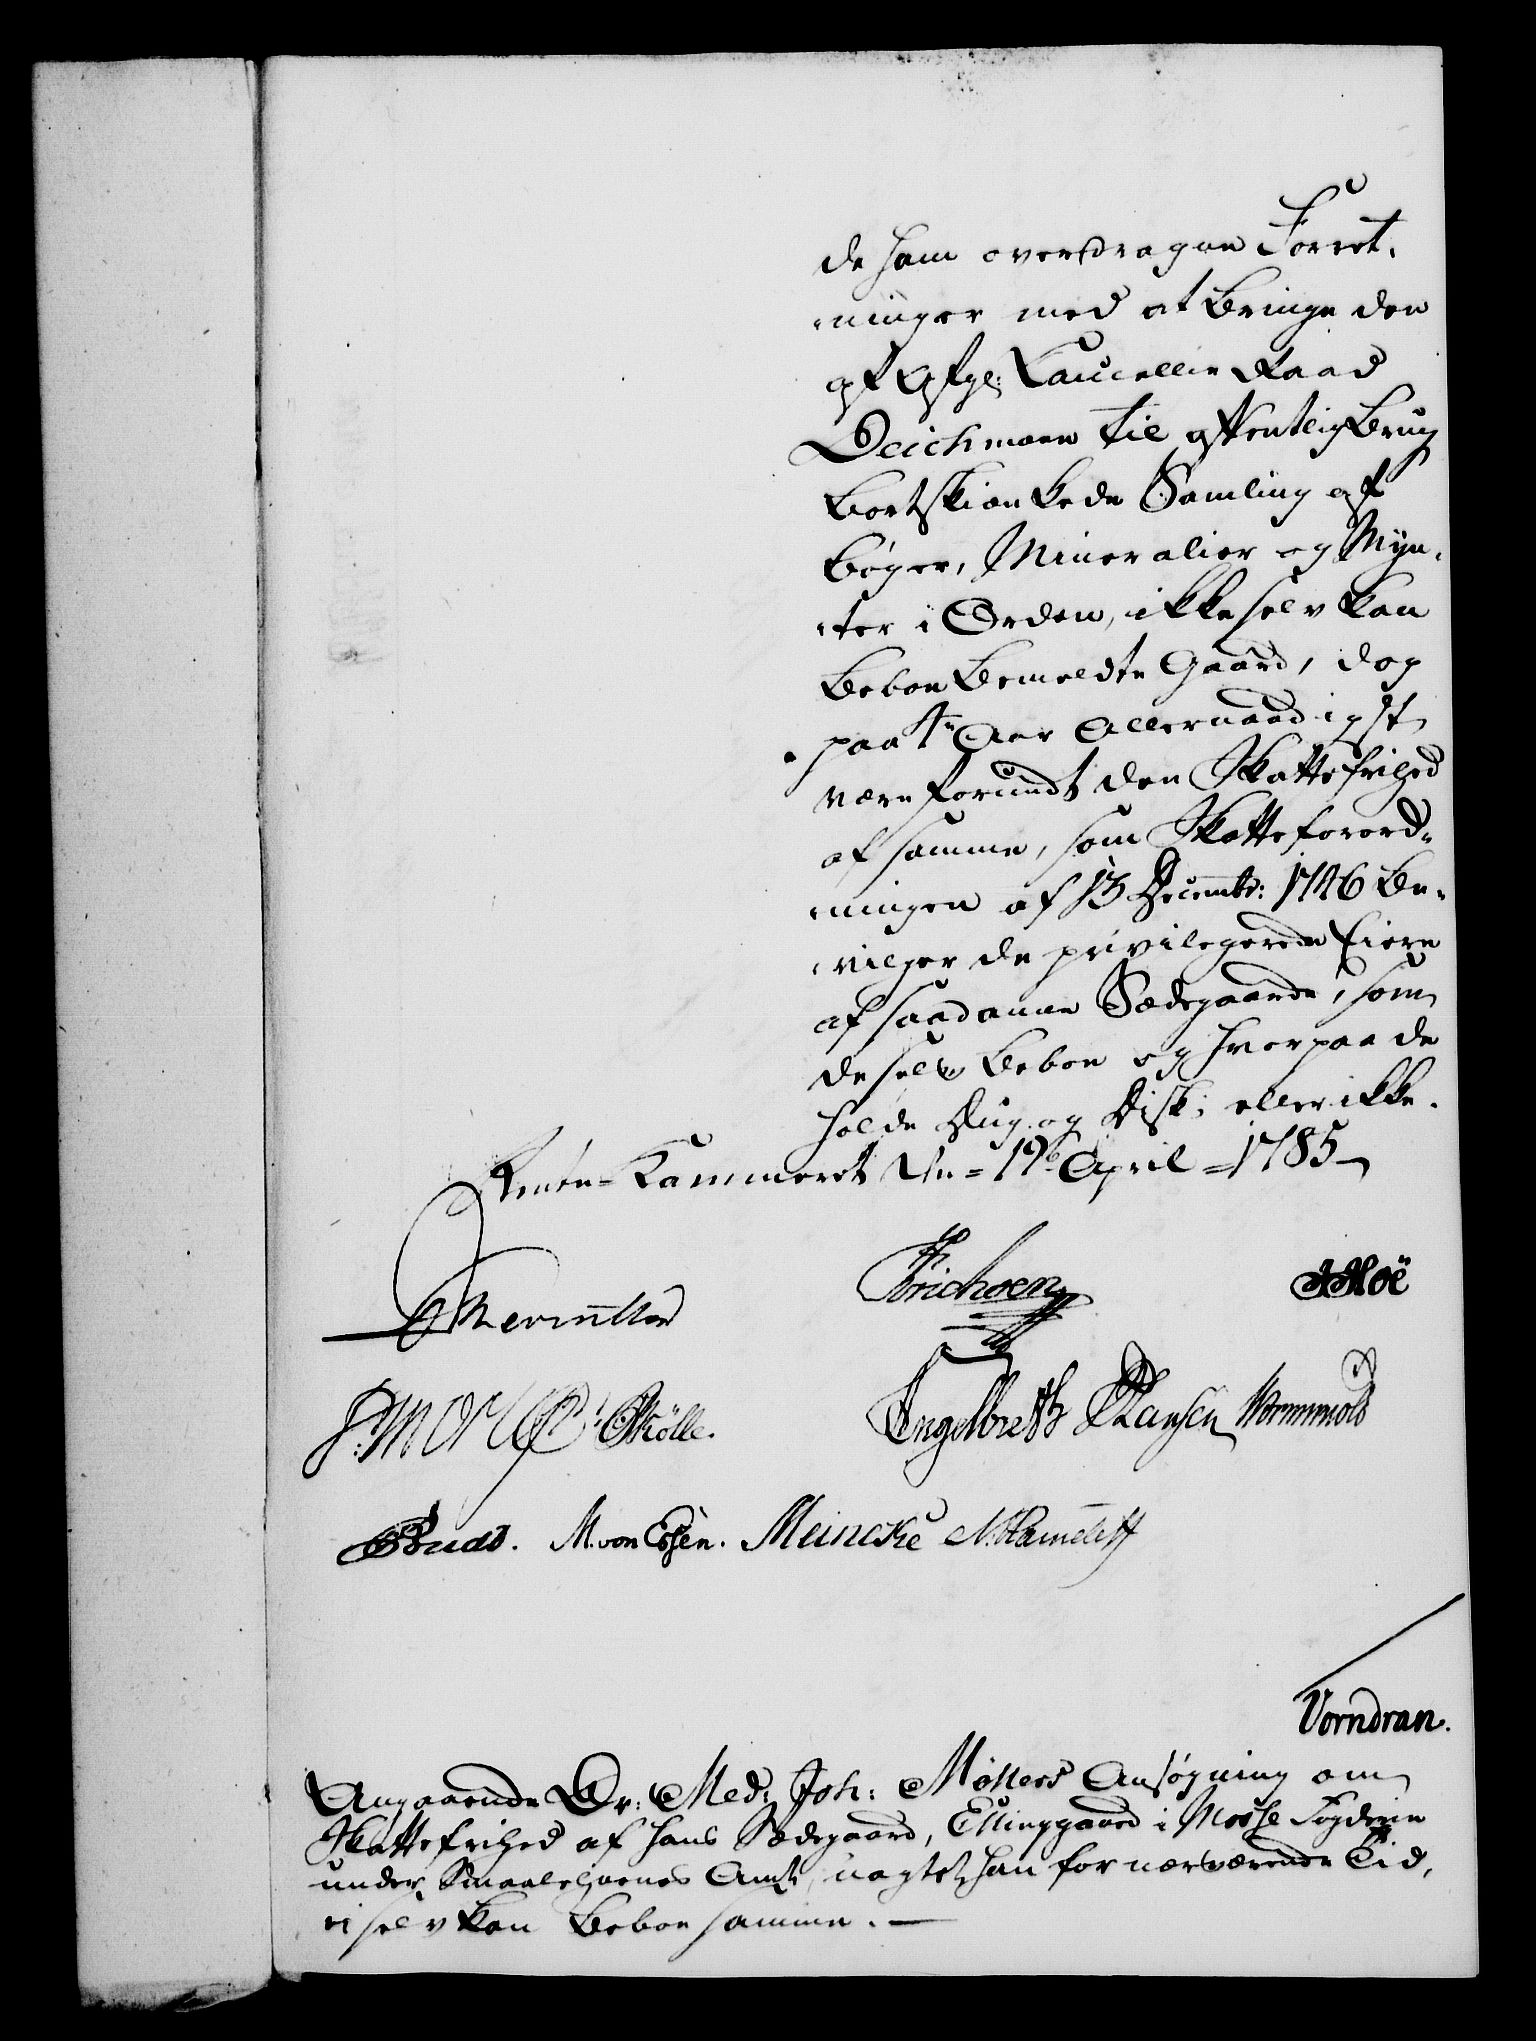 de ham overdragne Forret-
ninger med at bringe den
af Afgl: Cancellie Raad
Deichmann til offentlig Brug
bortskienkede Samling af
Bøger, Mineralier og Myn-
ter i Orden, ikke selv kan
beboe bemeldte Gaard, dog
paa Aar allernaadigst
være forundt den Skattefrihed
af samme, som Skatteforord-
ningen af 13 Decembr: 1746 be-
vilger de privilegerede Eiere
af saadanne Sædegaarde, som
de selv beboe og hvorpaa de
holde Dug og Disk; eller ikke.
Rente-Kammeret den 19de April 1785
Erichsen Moë
Müller.
Engelbreth Hansen Wormwold
M. von Essen. Meincke
Vorndran.
Angaaende Dr: Med: Joh: Møllers Ansøgning om
Skattefrihed af hans Sædegaard, Ellinggaard i Mosse Fogderie
under Smaalehnenes Amt, uagtet han for nærværende Tid,
ei selv kan beboe samme. —